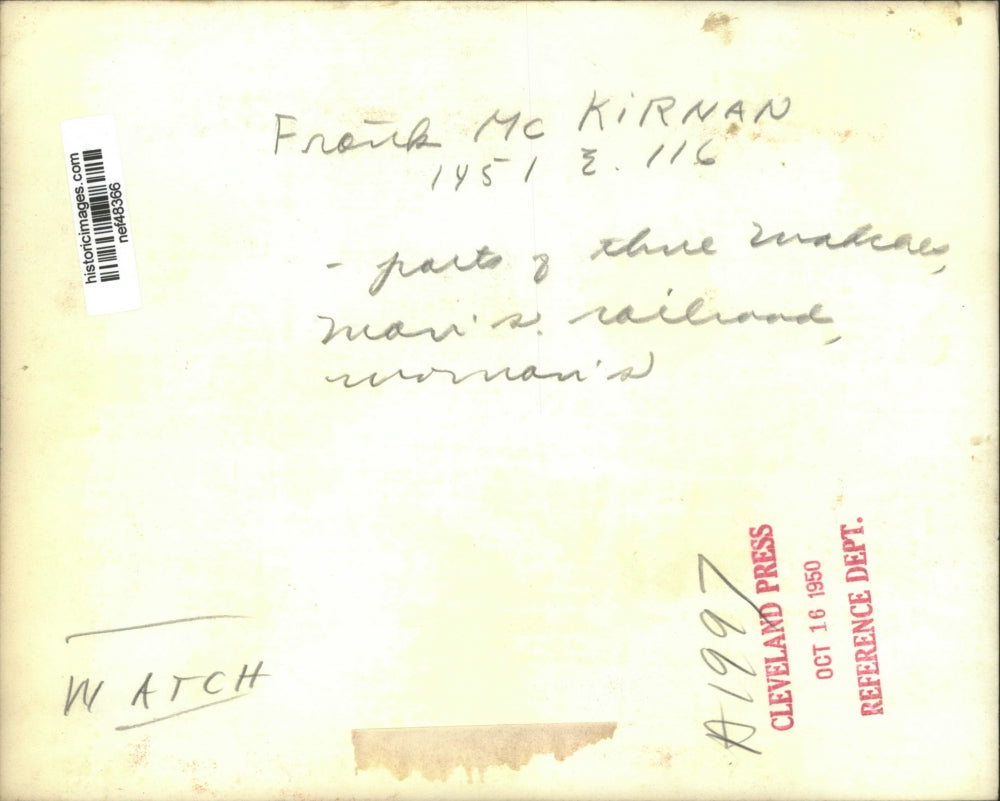 Frank Mc KiRNAN
1451 E. 116
- parts of three watches,
man's. railroad,
woman's
historicimages.com
nef48366
WATCH
A1997
CLEVELAND PRESS
OCT 16 1950
REFERENCE DEPT.